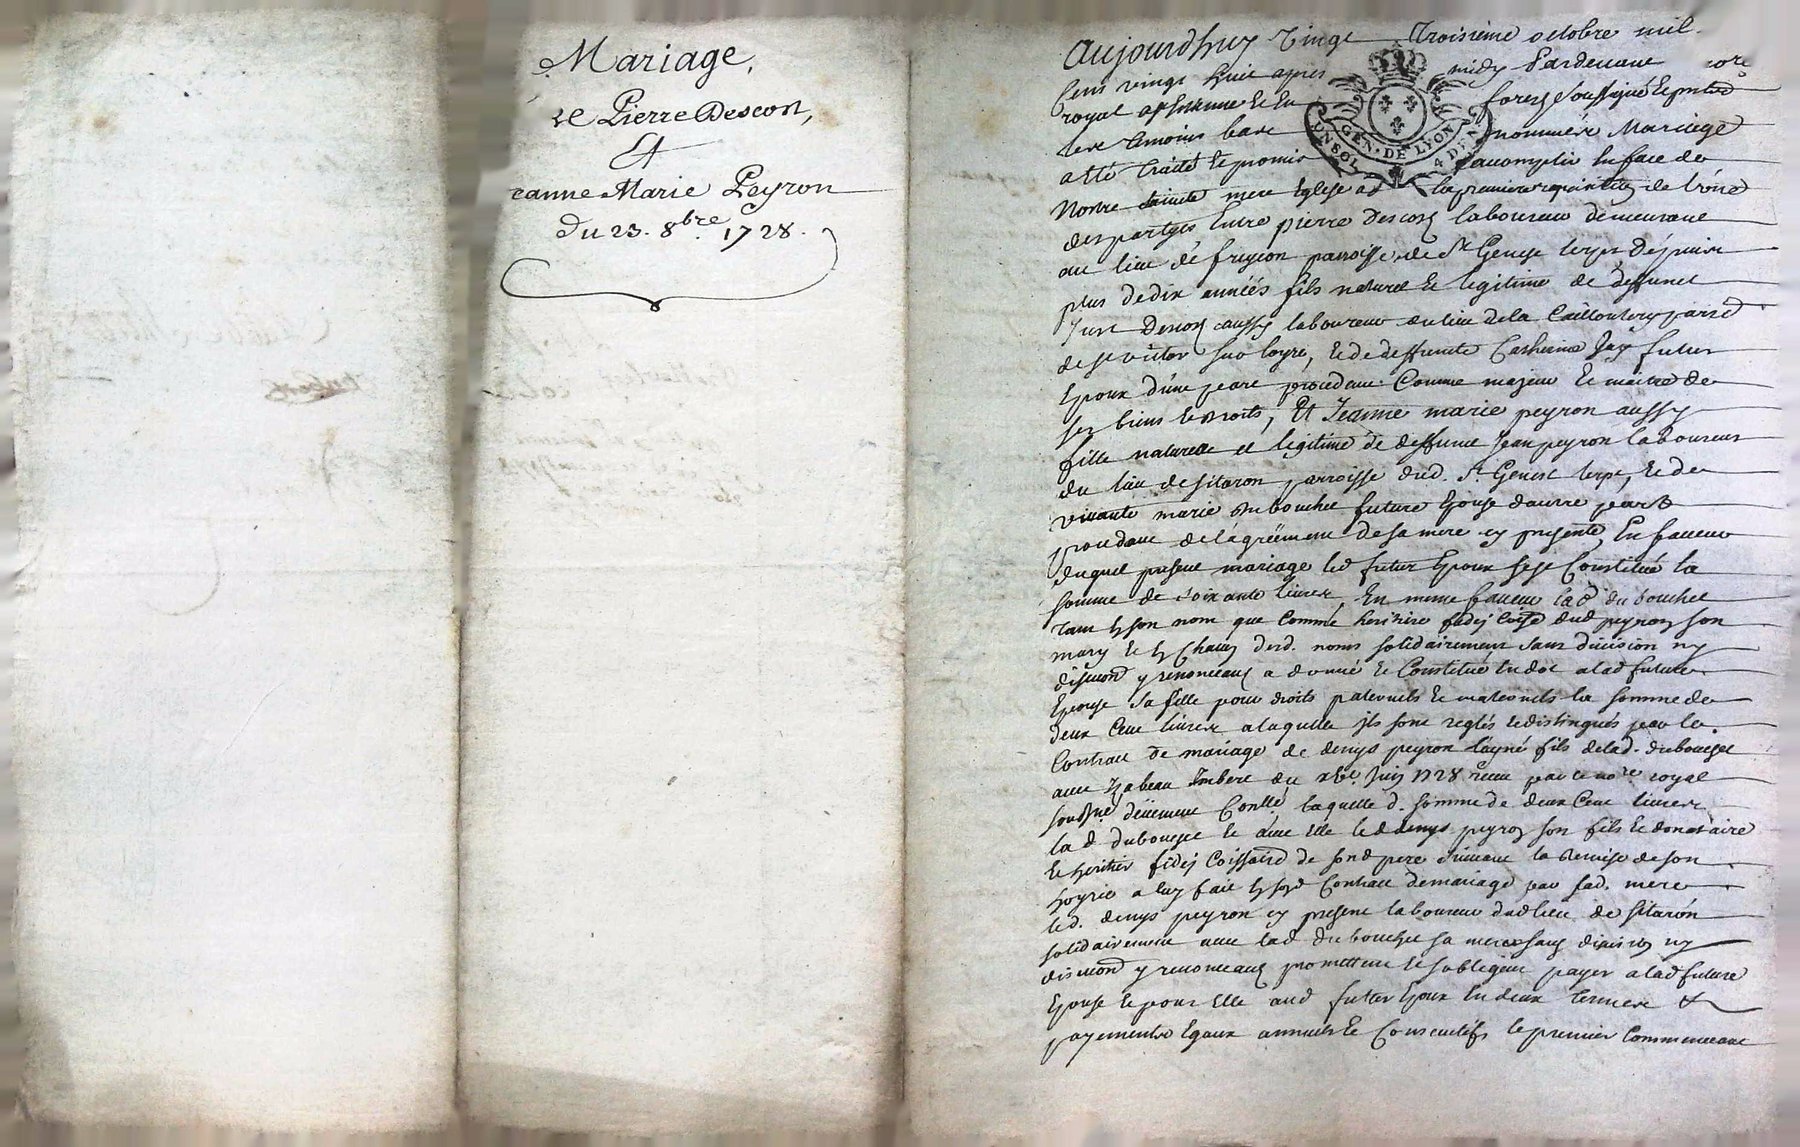 Mariage,
de Pierre Descors,
Et
Jeanne Marie Peyron
Du 23. 8bre. 1728.
Aujourdhuy vingt Troisieme octobre mil
Cens vingt huit apres midy Pardevant
royal forest soussigné
les temoins bas nommés Mariage
a été traité et promis accomplir En face de
Nostre sainte mere Eglise a la premiere requisition de L'une
des partyes Entre pierre Descos laboureur demeurant
au lieu de parroisse de St Genest lerpt Depuis
plus de dix années fils naturel et legitime de deffunct
Just Descos aussy laboureur du lieu de la parred
de St victor sur loyre, et de deffunte Catherine futur
Epoux d'une part procedant Comme majeur et maitre de
ses biens et droits, Et Jeanne marie peyron aussy
fille naturelle et legitime de deffunt Jean peyron laboureur
du lieu de sitaron parroisse dud. St Genest lerpt, et de
vivante marie du bouchet future Epouse d'autre part
procedant de l'agréement de sa mere cy presente, En faveur
duquel present mariage led futur Epoux se Constitué la
somme de soixante livres, En meme faveur lad du bouchet
tant En son nom que Comme heritiere dud peyron son
mary et En Chacun desd. noms solidairement sans division ny
discution y renonceant a donné et Constitué En dot a lad future
Epouse sa fille pour droits paternels et maternels la somme de
deux Cent livres a laquelle ils sont reglés et distingués par le
Contract de mariage de denys peyron l'ayné fils de lad. dubouchet
avec Izabeau Imbert du Juin 1728 receu par le nore royal
soussigné deuement Conllé, laquelle d. somme de deux Cent livres
la d dubouchet et avec Elle led denys peyron son fils et donataire
et heritier de sond pere suivant la Remise de son
hoyrie a luy fait Contract de mariage par sad. mere
led. denys peyron cy present laboureur dud lieu de sitaron
solidairement avec lad du bouchet sa mere sans division ny
discution y renonceant promettent et s'obligent payer a lad future
Epouse et pour Elle aud futur Epoux En deux termes &
payements Egaux annuels et Consecutifs le premier Commenceant
GEN. DE LYON